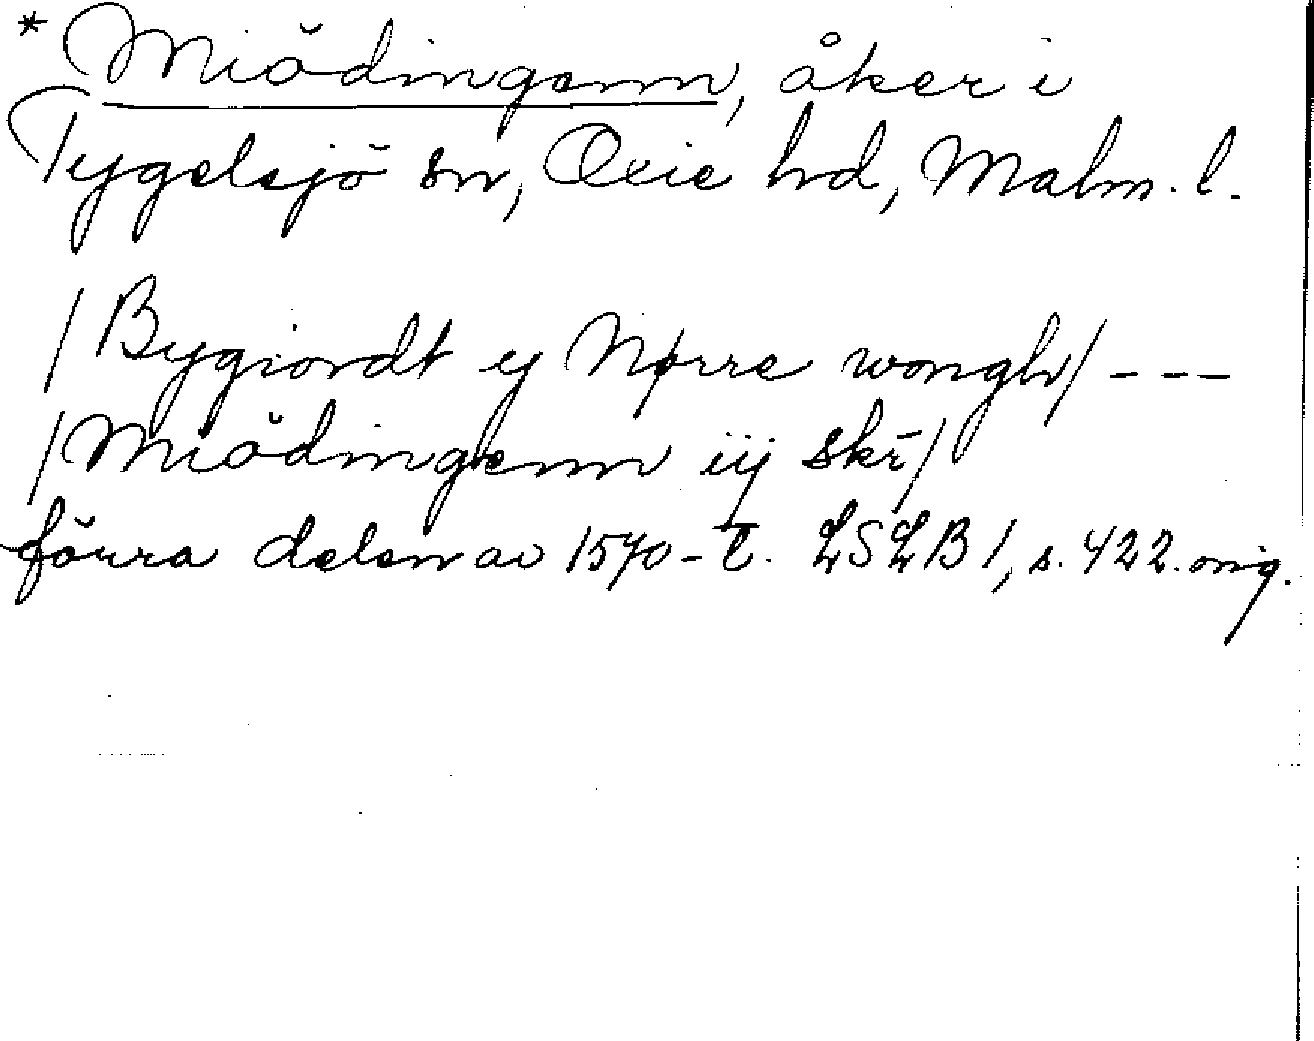 * Miödingenn, åker i
Tygelsjö sn, Oxie hd, Malm. l.
/Bygiordt ij Nørre wongh/ ---
/Miödingenn iij skr̄/
förra delen av 1570-t. LSLB 1, s. 422. orig.